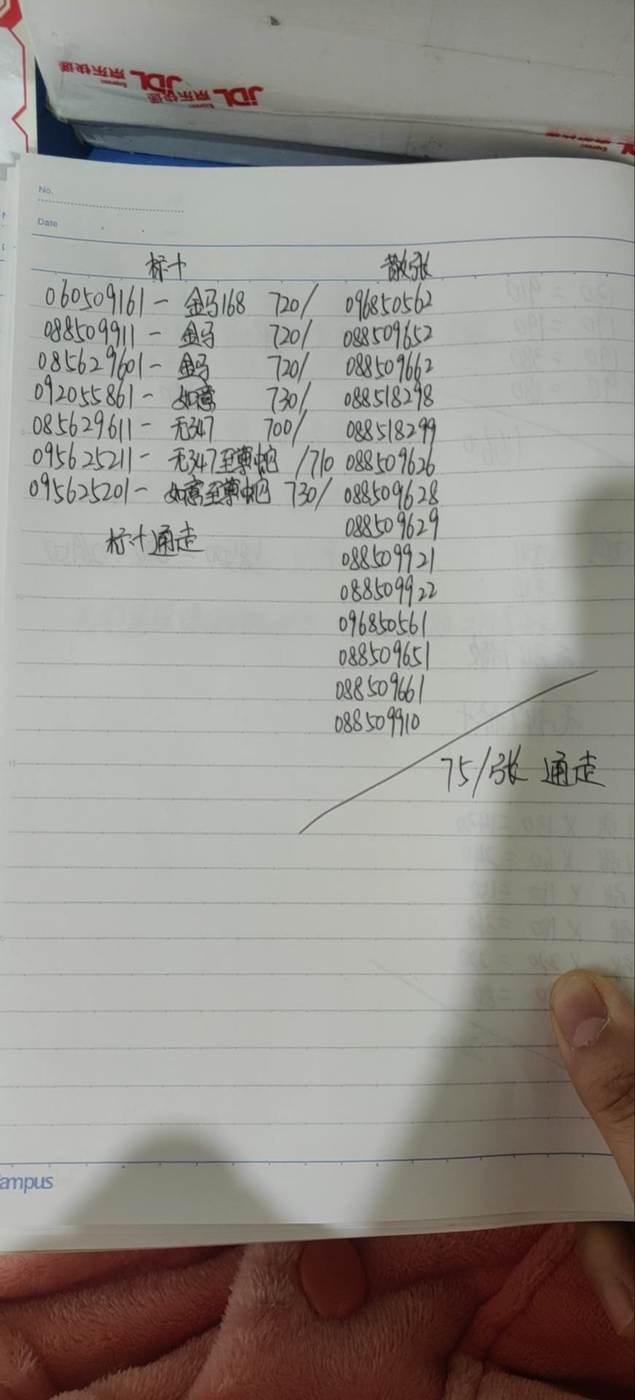 JDL 京东快递
JDL 京东快递
No.
Date
标十 散张
060509161- 金马168 720/ 096850562
088509911- 金马 720/ 088509652
085629601- 金马 720/ 088509662
092055861- 如意 730/ 088518298
085629611- 无347 700/ 088518299
095625211- 无347至尊蛇 /710 088509626
095625201- 如意至尊蛇 730/ 088509628
088509629
标十通走
088509921
088509922
096850561
088509651
088509661
088509910
75/张 通走
ampus